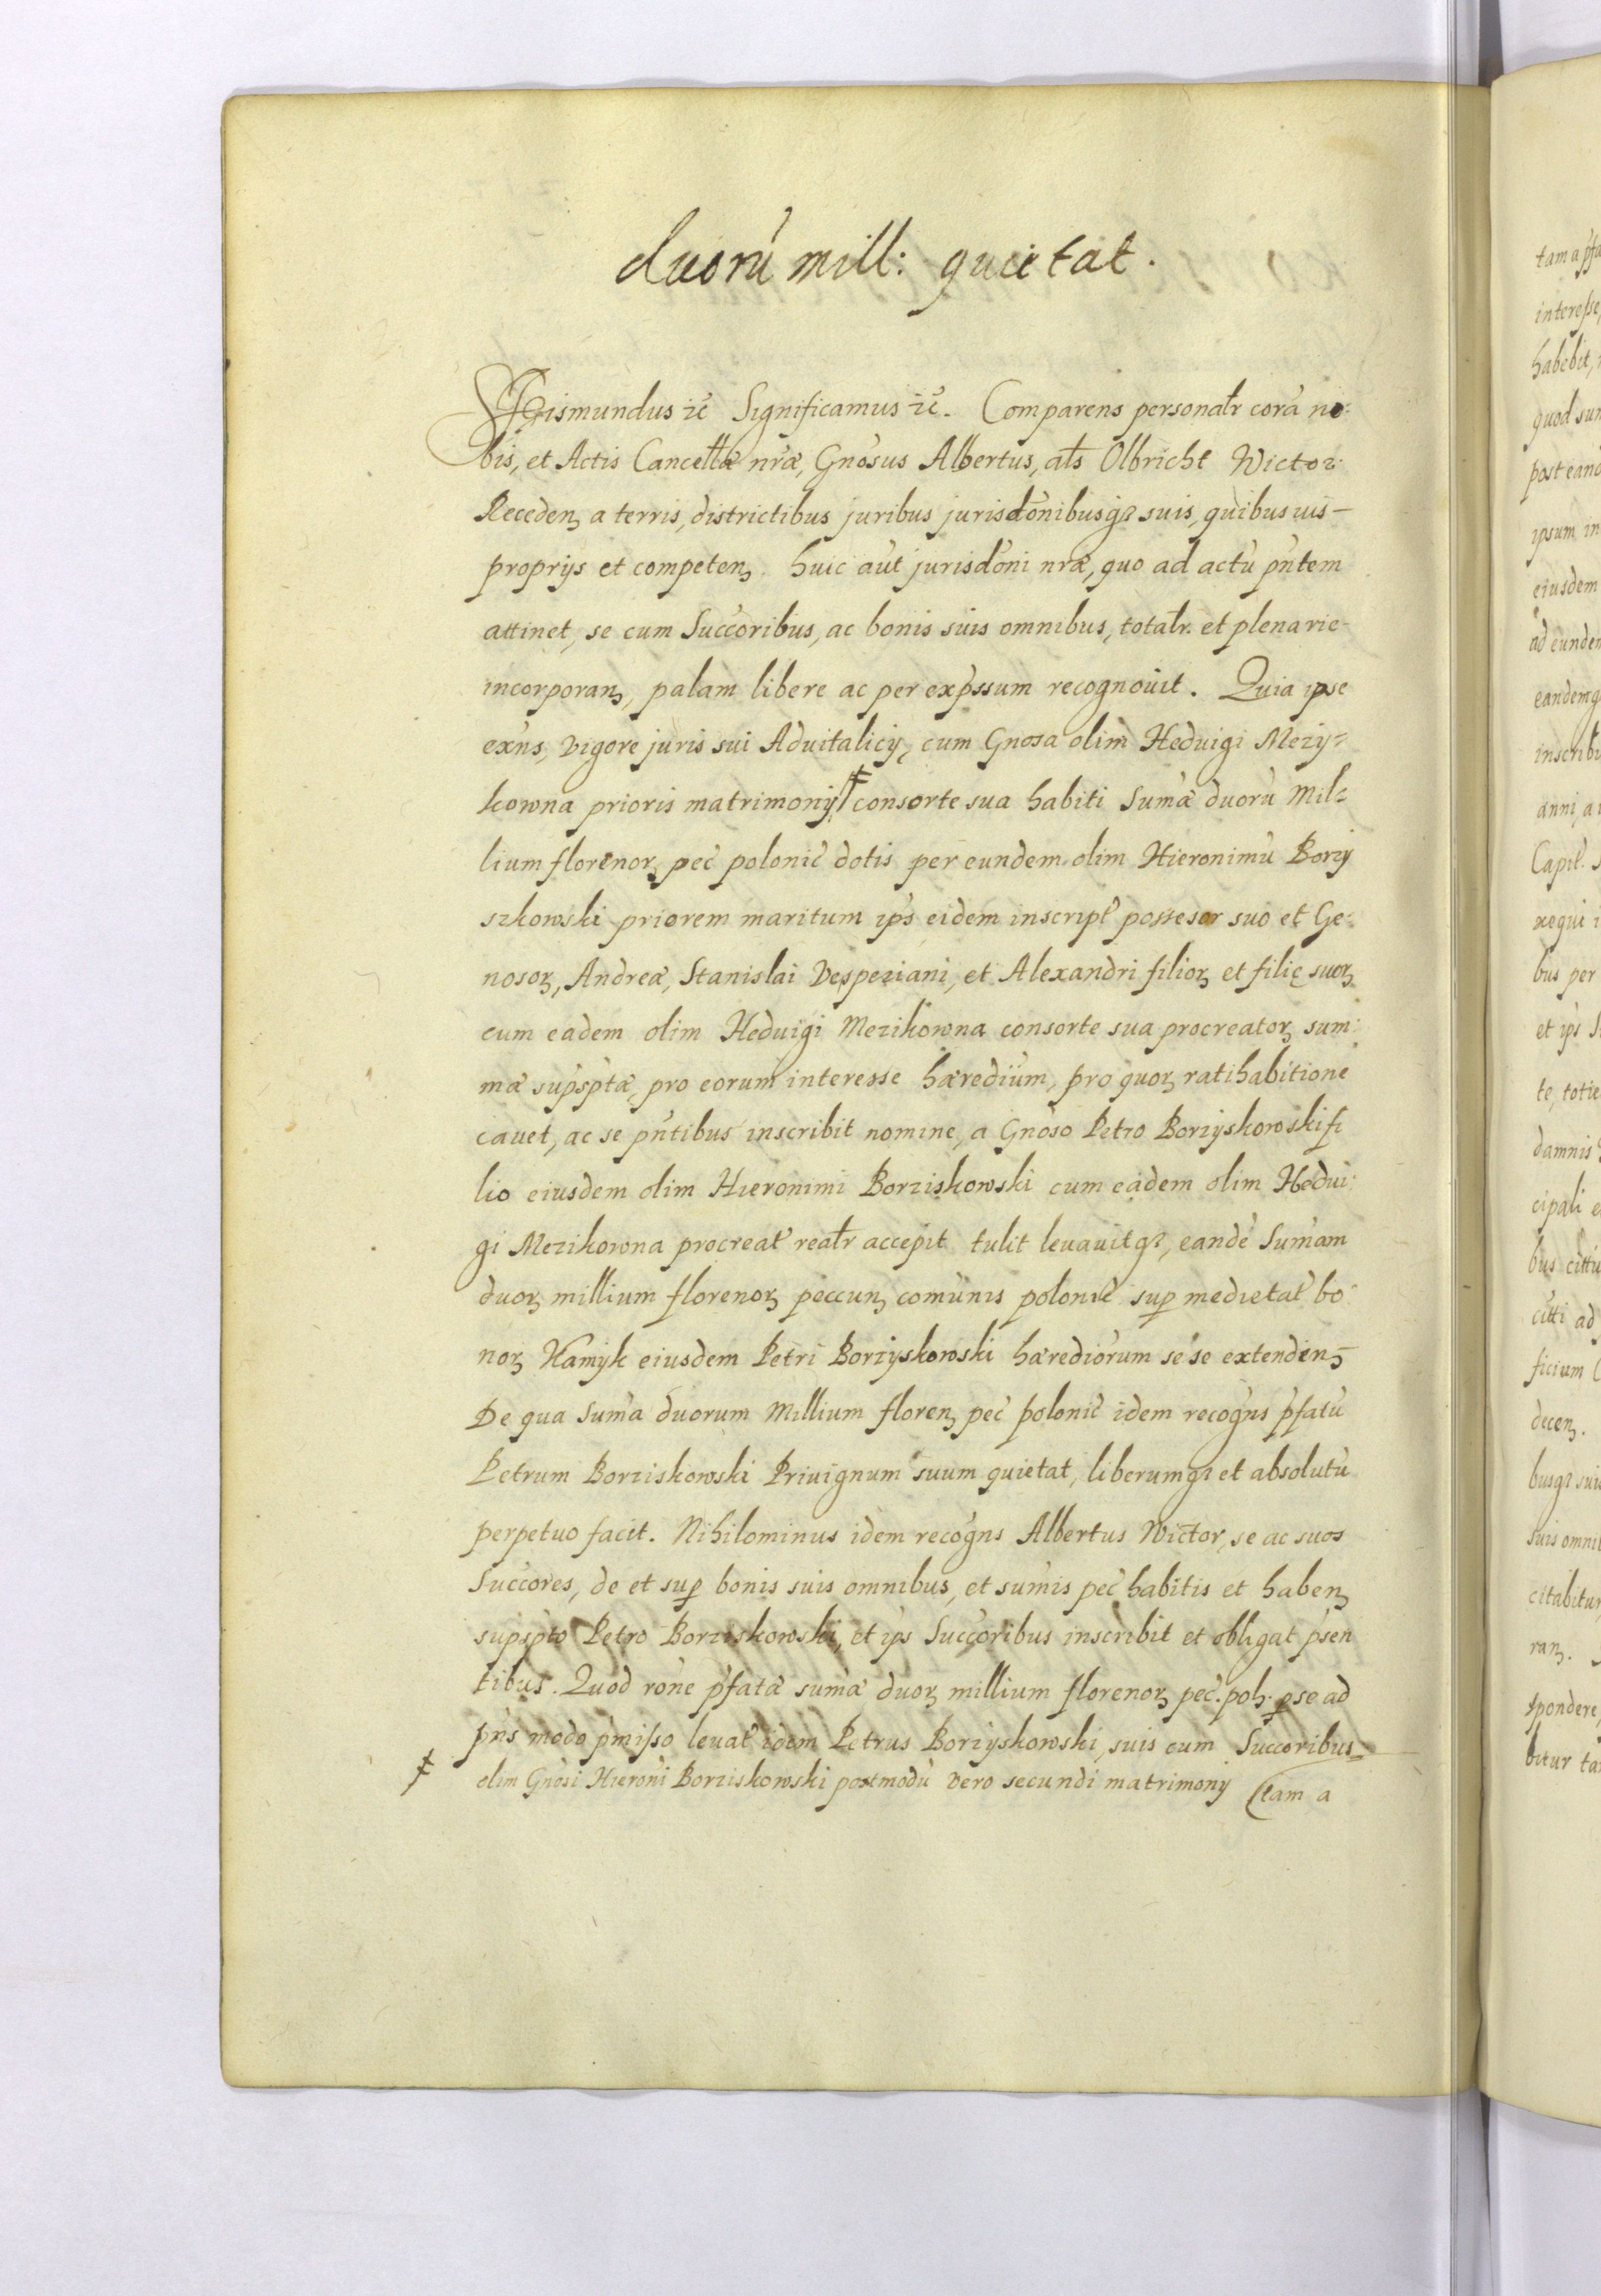 duorũ mill: quietat.
Sigismundus zč Significamus zč. Comparens personałr corã no:
bis, et Actis Cancełłæ nr̃æ, Gnõsus Albertus, ałs Olbricht Wictor
Recedenʒ a terris, districtibus juribus jurisdõnibusqʒ suis, quibusuis –
proprijs et competenʒ. huic aut̃ jurisdõni nræ, quo ad actũ pñtem
attinet, se cum Succ̃oribus, ac bonis suis omnibus, totałr. et plenarie
incorporanʒ, palam libere ac per exp̃ssum recognouit. Quia ipse
exñs, vigore juris sui Aduitalicij, cum Gnosa olim Heduigi Mezy=
kowna prioris matrimonij ǂ consorte sua habiti Sum̃æ duorũ Mil=
lium florenorʒ pec̃ polonic̃ dotis per eundem olim Hieronimũ Borzy
szkowski priorem maritum ip̃s eidem inscript̃ possesor suo et Ge=
nosorʒ, Andreæ, Stanislai Vespeziani, et Alexandri filiorʒ et filię suorʒ
cum eadem olim Heduigi Mezikowna consorte sua procreatorʒ sum:
mæ sup̃sp̃tæ, pro eorum interesse hærediũm, pro quorʒ ratihabitione
cauet, ac se pñtibus inscribit nomine, a Gnõso Petro Borzyskowski fi
lio eiusdem olim Hieronimi Borziskowski cum eadem olim Hedui:
gi Mezikowna procreat̃ reałr accepit tulit leuauitqʒ, eandẽ Sum̃am
duorʒ millium florenorʒ peccunʒ com̃unis polonic̃ sup̱ medietat̃ bo
norʒ Kamyk eiusdem Petri Borzyskowski hærediorum sese extendenʒ
De qua Sum̃a duorum Millium florenʒ pec̃ polonic̃ idem recogñs p̃fatũ
Petrum Borziskowski Priuignum suum quietat, liberumqʒ et absolutũ
perpetuo facit. Nihilominus idem recogñs Albertus Wictor, se ac suos
Succ̃ores, de et sup̱ bonis suis omnibus, et sum̃is pec̃ habitis et habenʒ
sup̃sp̃to Petro Borziskowski, et ip̃s Succ̃oribus inscribit et obligat p̃sen
tibus. Quod rõne p̃fatæ sum̃æ duorʒ millium florenorʒ pec̃. polʒ. p̱ se ad
pñs modo p̃misso leuat̃ idem Petrus Borzyskowski, suis cum Succ̃oribus
ǂ olim Gnõsi Hieroñi Borziskowski postmodũ vero secundi matrimonij (tam a